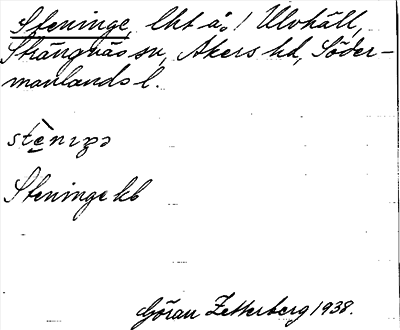 Steninge, lht å /Ulvhäll,
Strängnäs sn, Åkers hd, Söder-
manlands l.
Steninge kb
Göran Zetterberg 1938.